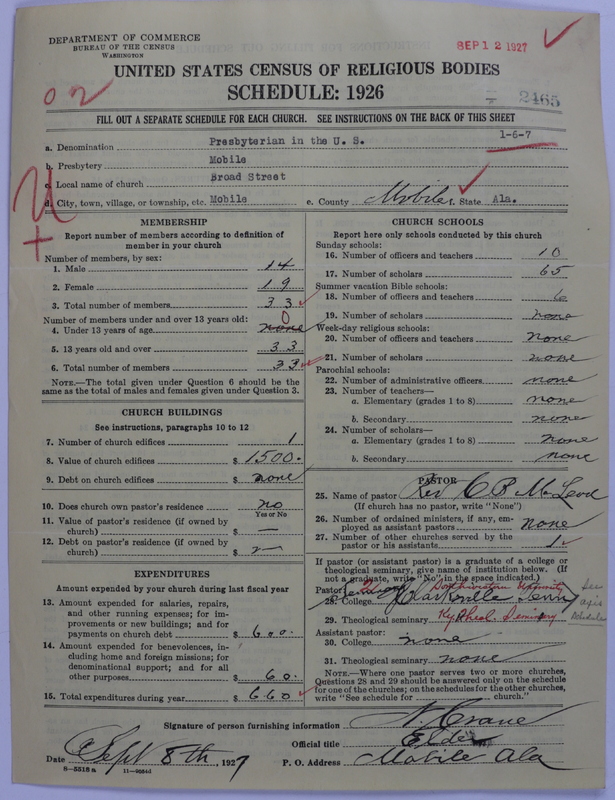 DEPARTMENT OF COMMERCE
BUREAU OF THE CENSUS
WASHINGTON
SEP 12 1927
UNITED STATES CENSUS OF RELIGIOUS BODIES
SCHEDULE: 1926
2465
FILL OUT A SEPARATE SCHEDULE FOR EACH CHURCH. SEE INSTRUCTIONS ON THE BACK OF THIS SHEET
1-6-7
a. Denomination Presbyterian in the U. S.
b. Presbytery Mobile
c. Local name of church Broad Street
d. City, town, village, or township, etc. Mobile e. County Mobile f. State Ala.
MEMBERSHIP
Report number of members according to definition of
member in your church
Number of members, by sex:
1. Male 14
2. Female 19
3. Total number of members 33
Number of members under and over 13 years old: 0
4. Under 13 years of age none
5. 13 years old and over 33
6. Total number of members 33
NOTE.—The total given under Question 6 should be
same as the total of males and females given under Question 3.
CHURCH BUILDINGS
See instructions, paragraphs 10 to 12
7. Number of church edifices 1
8. Value of church edifices $ 1500.
9. Debt on church edifices $ none
10. Does church own pastor's residence no
Yes or No
11. Value of pastor's residence (if owned by
church) $ —
12. Debt on pastor's residence (if owned by
church) $ —
EXPENDITURES
Amount expended by your church during last fiscal year
13. Amount expended for salaries, repairs,
and other running expenses; for im-
provements or new buildings; and for
payments on church debt $ 600.
14. Amount expended for benevolences, in-
cluding home and foreign missions; for
denominational support; and for all
other purposes $ 60.
15. Total expenditures during year $ 660
CHURCH SCHOOLS
Report here only schools conducted by this church
Sunday schools:
16. Number of officers and teachers 10
17. Number of scholars 65
Summer vacation Bible schools:
18. Number of officers and teachers 6
19. Number of scholars none
Week-day religious schools:
20. Number of officers and teachers none
21. Number of scholars none
Parochial schools:
22. Number of administrative officers none
23. Number of teachers—
a. Elementary (grades 1 to 8) none
b. Secondary none
24. Number of scholars—
a. Elementary (grades 1 to 8) none
b. Secondary none
PASTOR
25. Name of pastor Rev C B McLeod
(If church has no pastor, write "None")
26. Number of ordained ministers, if any, em-
ployed as assistant pastors none
27. Number of other churches served by the
pastor or his assistants 1
If pastor (or assistant pastor) is a graduate of a college or
theological seminary, give name of institution below. (If
not a graduate, write "No" in the space indicated.)
Pastor: Southwestern
28. College Clarksville Tenn
29. Theological seminary Ky Theol. Seminary
See
Schedule
Assistant pastor:
30. College none
31. Theological seminary none
NOTE.—Where one pastor serves two or more churches,
Questions 28 and 29 should be answered only on the schedule
for one of the churches; on the schedules for the other churches,
write "See schedule for church."
Signature of person furnishing information N. Crane
Official title Elder
Date Sept 8th, 1927 P. O. Address Mobile Ala
8-5518 a 11-9954d